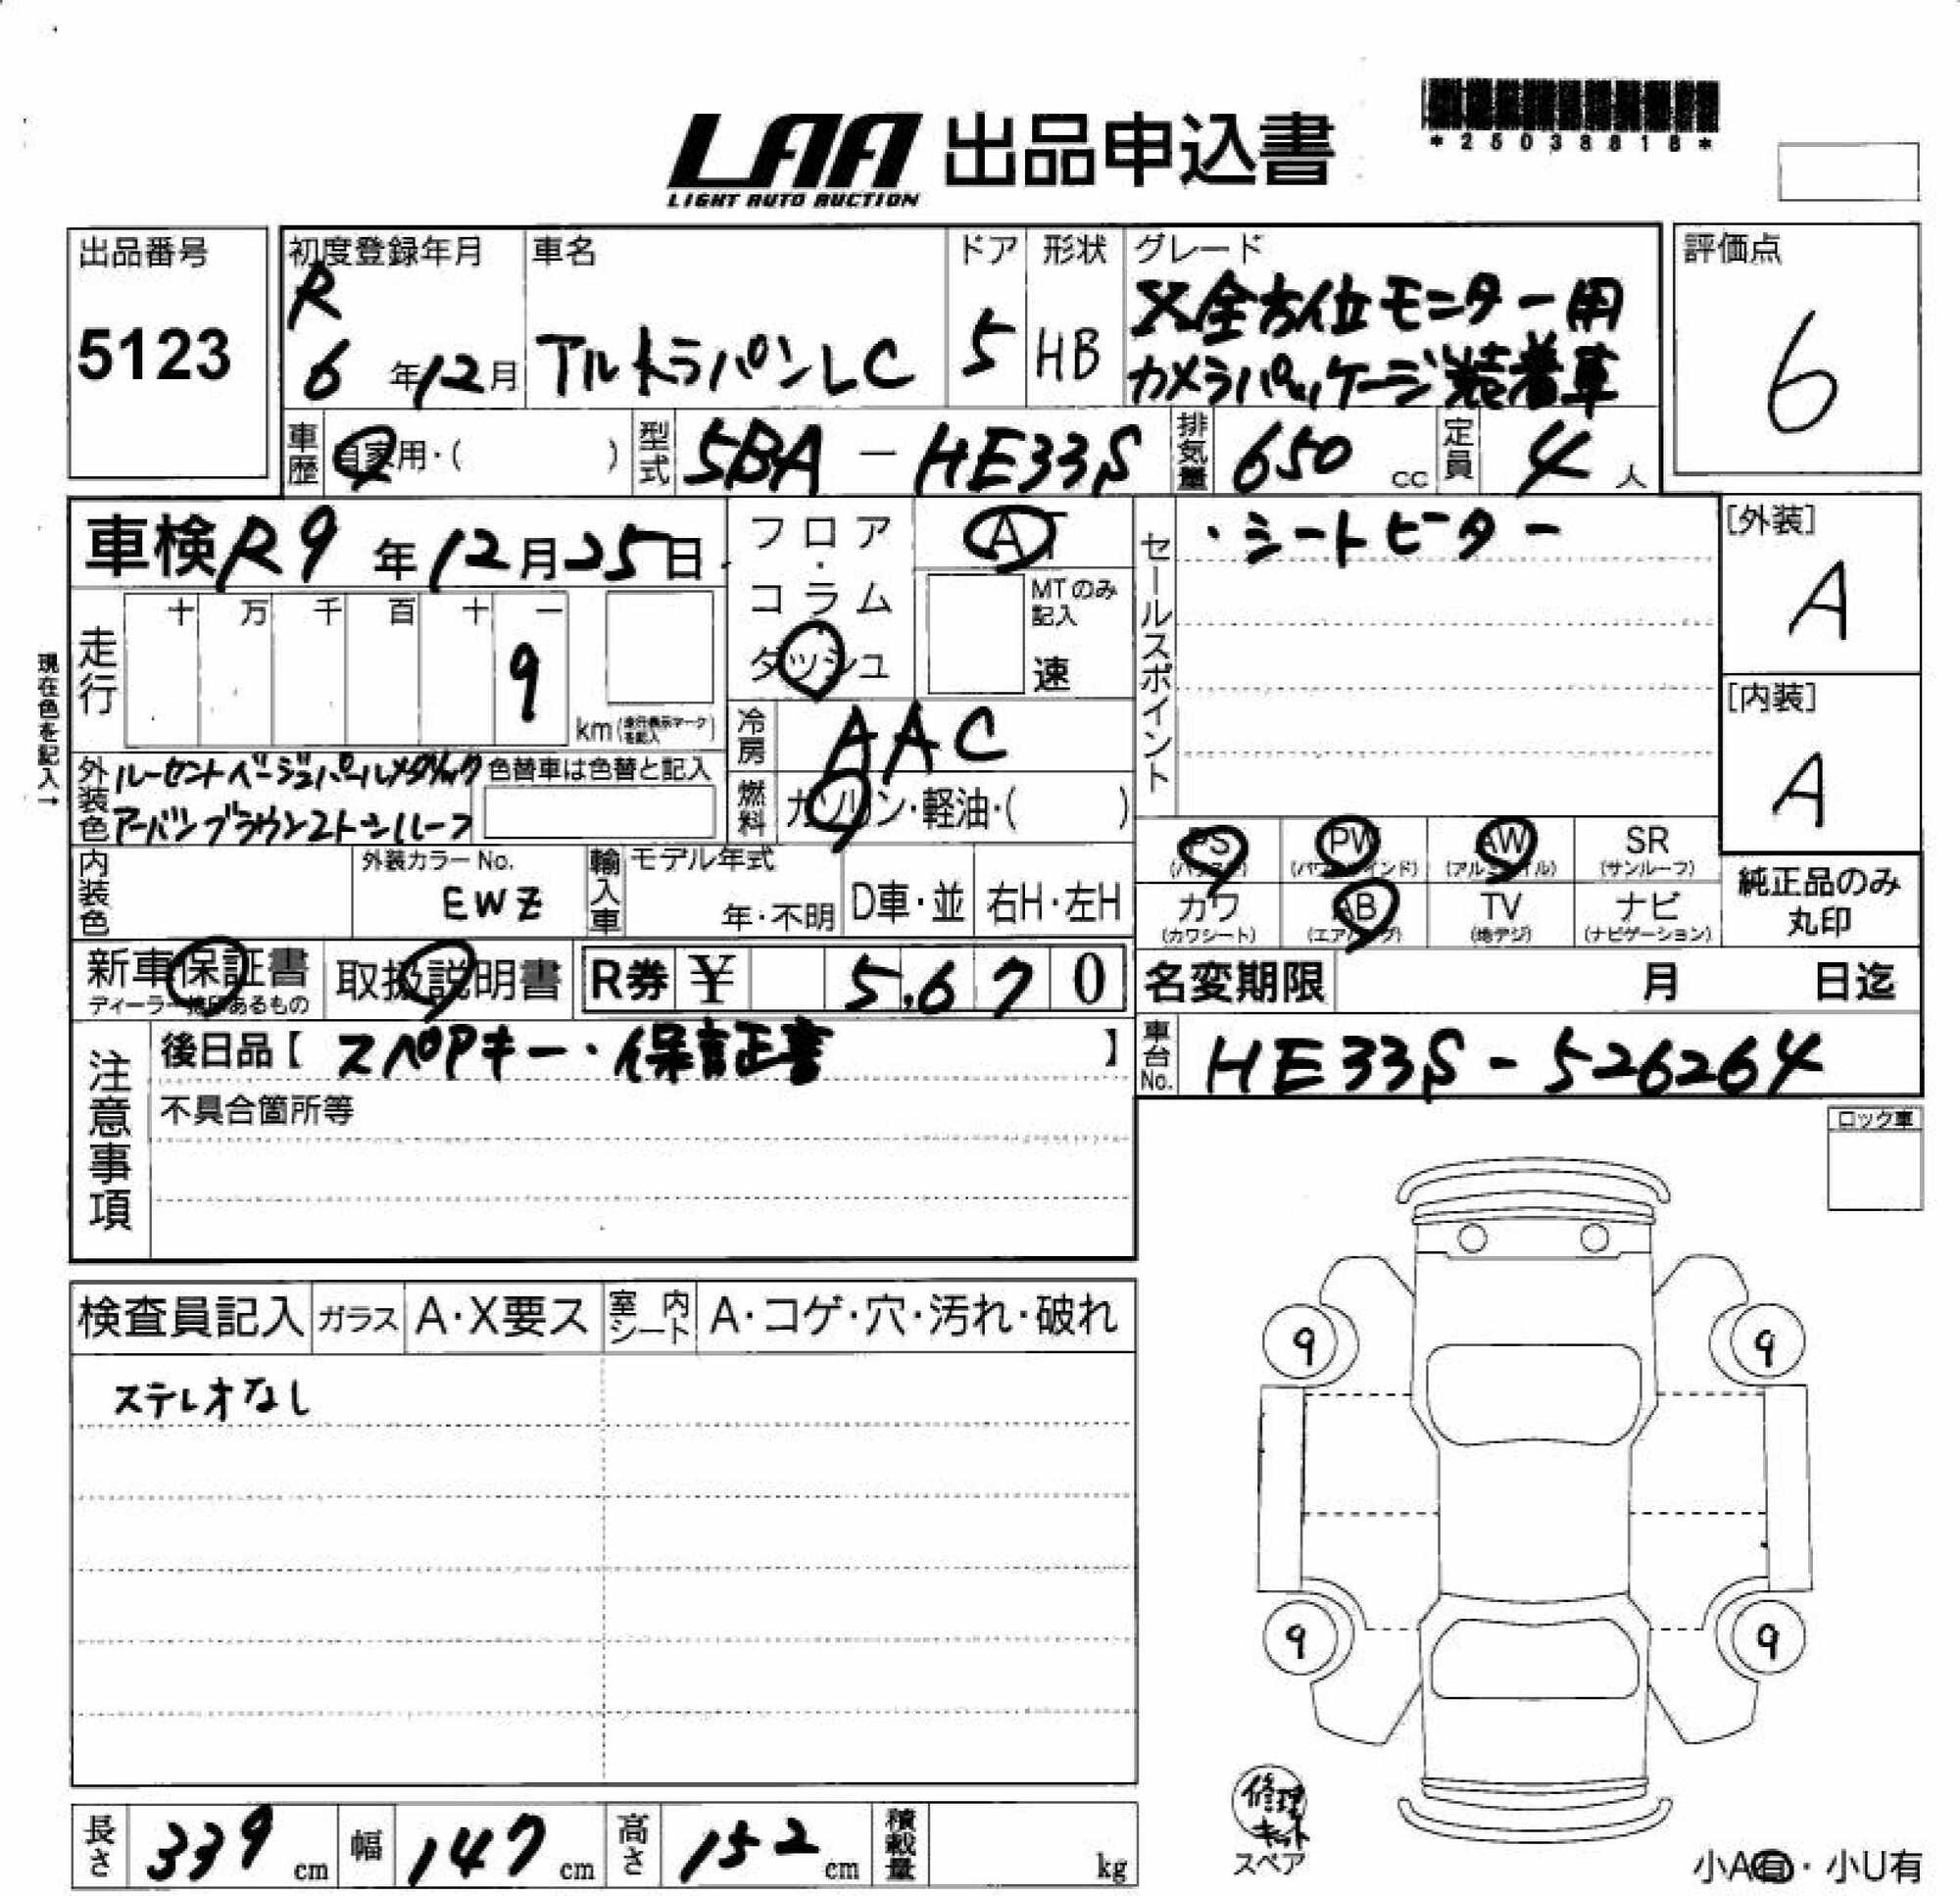 LAA 出品申込書
LIGHT AUTO AUCTION
*25038818*
出品番号
5123
初度登録年月
R
6年12月
車名
アルトラパンLC
ドア
5
形状
HB
グレード
X全方位モニター用
カメラパッケージ装着車
評価点
6
車歴
自家用・( )
型式
5BA-HE33S
排気量
650cc
定員
4人
車検R9年12月25日
走行
十 万 千 百 十 一
9
km(走行表示マークを記入)
現在色を記入→
外装色
ルーセントベージュパールメタリック
アーバンブラウン2トーンルーフ
色替車は色替と記入
内装色
外装カラーNo.
EWZ
輸入車
モデル年式
年・不明
D車・並
右H・左H
フロア
・
コラム
・
ダッシュ
AT
MTのみ記入
速
冷房
AAC
燃料
ガソリン・軽油・( )
セールスポイント
・シートヒーター
[外装]
A
[内装]
A
PS (パワステ)
PW (パワーウインド)
AW (アルミホイル)
SR (サンルーフ)
カワ (カワシート)
AB (エアバッグ)
TV (地デジ)
ナビ (ナビゲーション)
純正品のみ
丸印
新車保証書
ディーラー捺印あるもの
取扱説明書
R券 ¥ 5,670
名変期限 月 日迄
車台No.
HE33S-526264
注意事項
後日品【スペアキー・保証書】
不具合箇所等
ロック車
検査員記入
ガラス
A・X要ス
室内シート
A・コゲ・穴・汚れ・破れ
ステレオなし
9 9
9 9
修理
キット
スペア
小A有・小U有
長さ 339cm
幅 147cm
高さ 152cm
積載量 kg